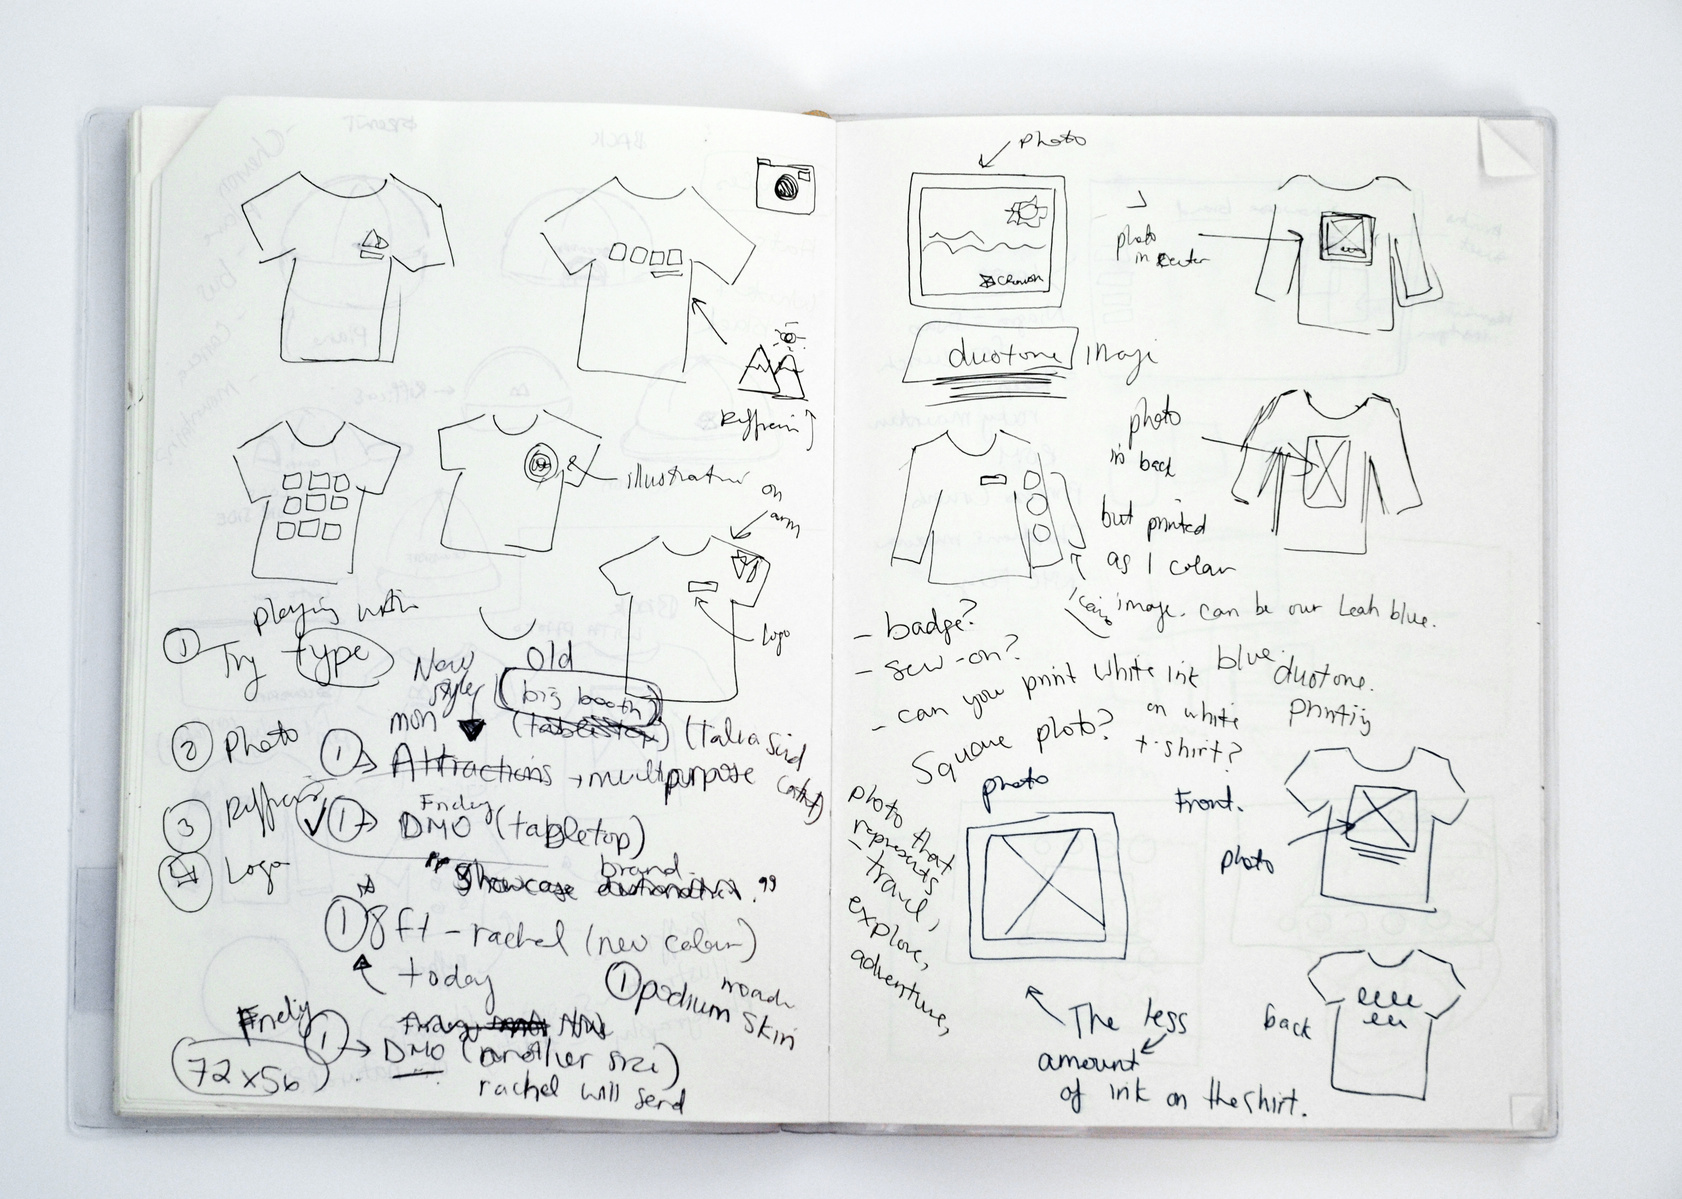 illustration
on
arm
logo
playing with
① Try type
② photo
③
④ Logo
New
style
Old
big booth
mon
① Attractions → multipurpose
Friday
① → DMO (tabletop)
brand
"Showcase
① 8ft - rachel (new colour)
today
① podium skin
Friday
72x56
① → DMO (another size)
rachel will send
photo
photo
in center
CRowsh
duotone
photo
in back
but printed
as 1 colour
image. can be our Leah blue.
- badge?
- sew-on?
- can you print white ink
on white
t-shirt?
blue duotone.
printing
Square photo?
photo
photo that
represents
- travel,
explore,
adventure,
Front.
photo
back
The less
amount
of ink on the shirt.